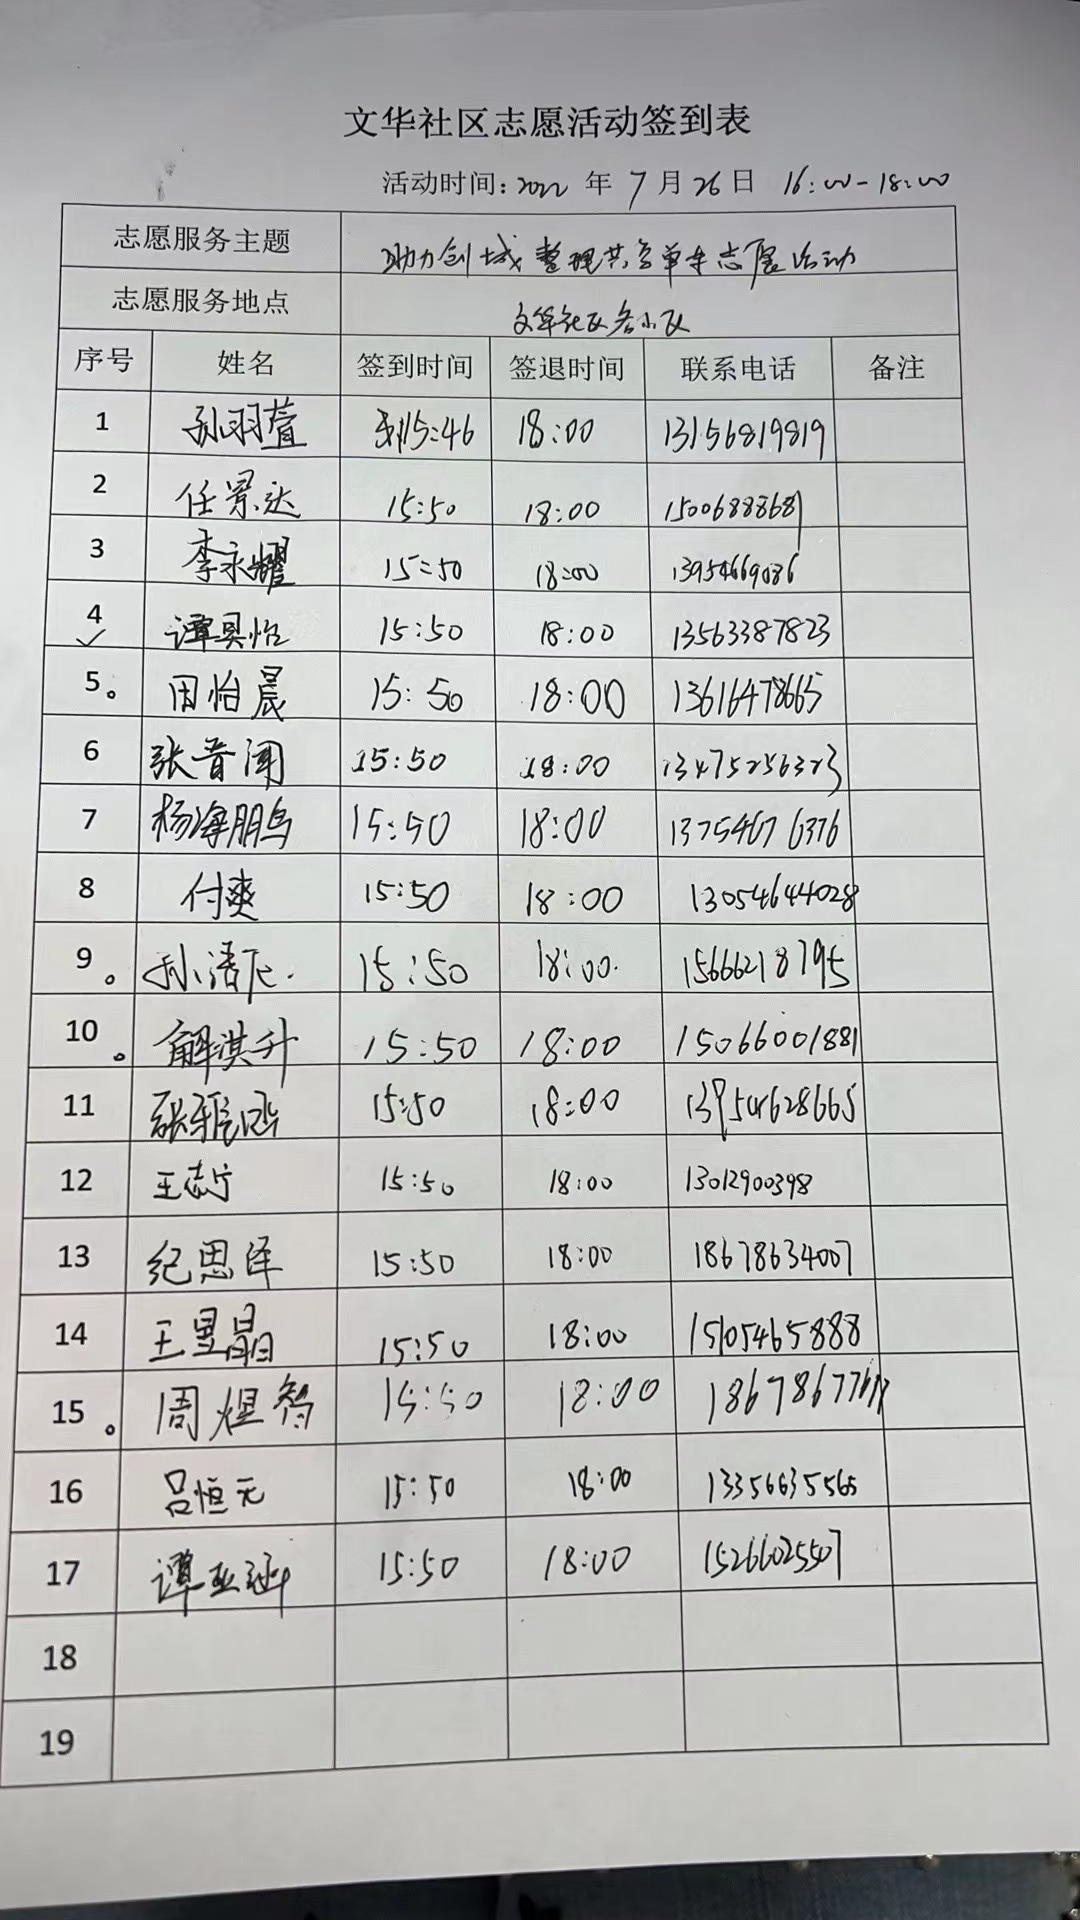 文华社区志愿活动签到表
活动时间：2022 年 7 月 26 日 16:00-18:00
志愿服务主题 助力创城整理共享单车志愿活动
志愿服务地点 文华社区各小区
序号 姓名 签到时间 签退时间 联系电话 备注
1 孙羽萱 15:46 18:00 13156819819
2 任景达 15:50 18:00 15006888689
3 李永耀 15:50 18:00 13954669086
4 谭具怡 15:50 18:00 13563387823
5 田怡晨 15:50 18:00 13616478665
6 张音闻 15:50 18:00 13475256323
7 杨海鹏 15:50 18:00 13754676376
8 付爽 15:50 18:00 13054644028
9 孙浩 15:50 18:00 15666218795
10 解淇升 15:50 18:00 15066001881
11 张雅 15:50 18:00 13954628665
12 王志宁 15:50 18:00 13012900398
13 纪思泽 15:50 18:00 18678634007
14 王昱晶 15:50 18:00 15105465888
15 周煜智 15:50 18:00
16 吕恒元 15:50 18:00 13356635565
17 谭亚 15:50 18:00 15266025507
18
19